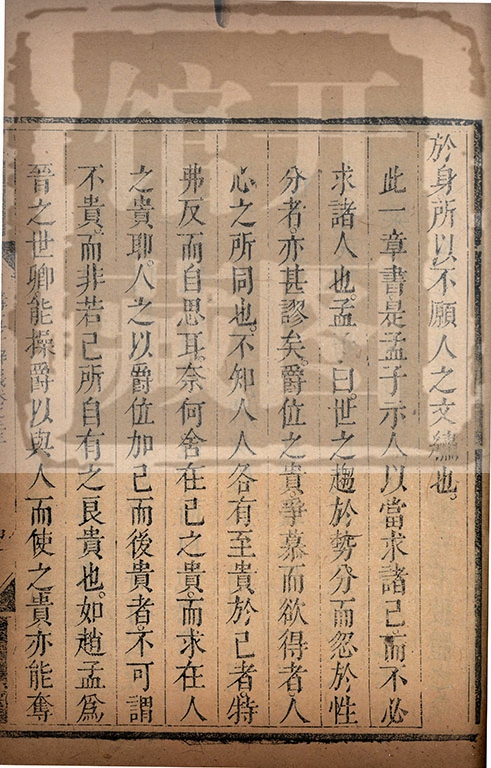 於身所以不願人之文繡也。
此一章書是孟子示人以當求諸己而不必
求諸人也。孟子曰。世之趨於勢分而忽於性
分者亦甚謬矣。爵位之貴爭慕而欲得者人
心之所同也。不知人人各有至貴於己者。特
弗反而自思耳。奈何舍在己之貴。而求在人
之貴耶。人之以爵位加己而後貴者。不可謂
不貴。而非若己所自有之良貴也。如趙孟為
晉之世卿能操爵以與人而使之貴亦能奪